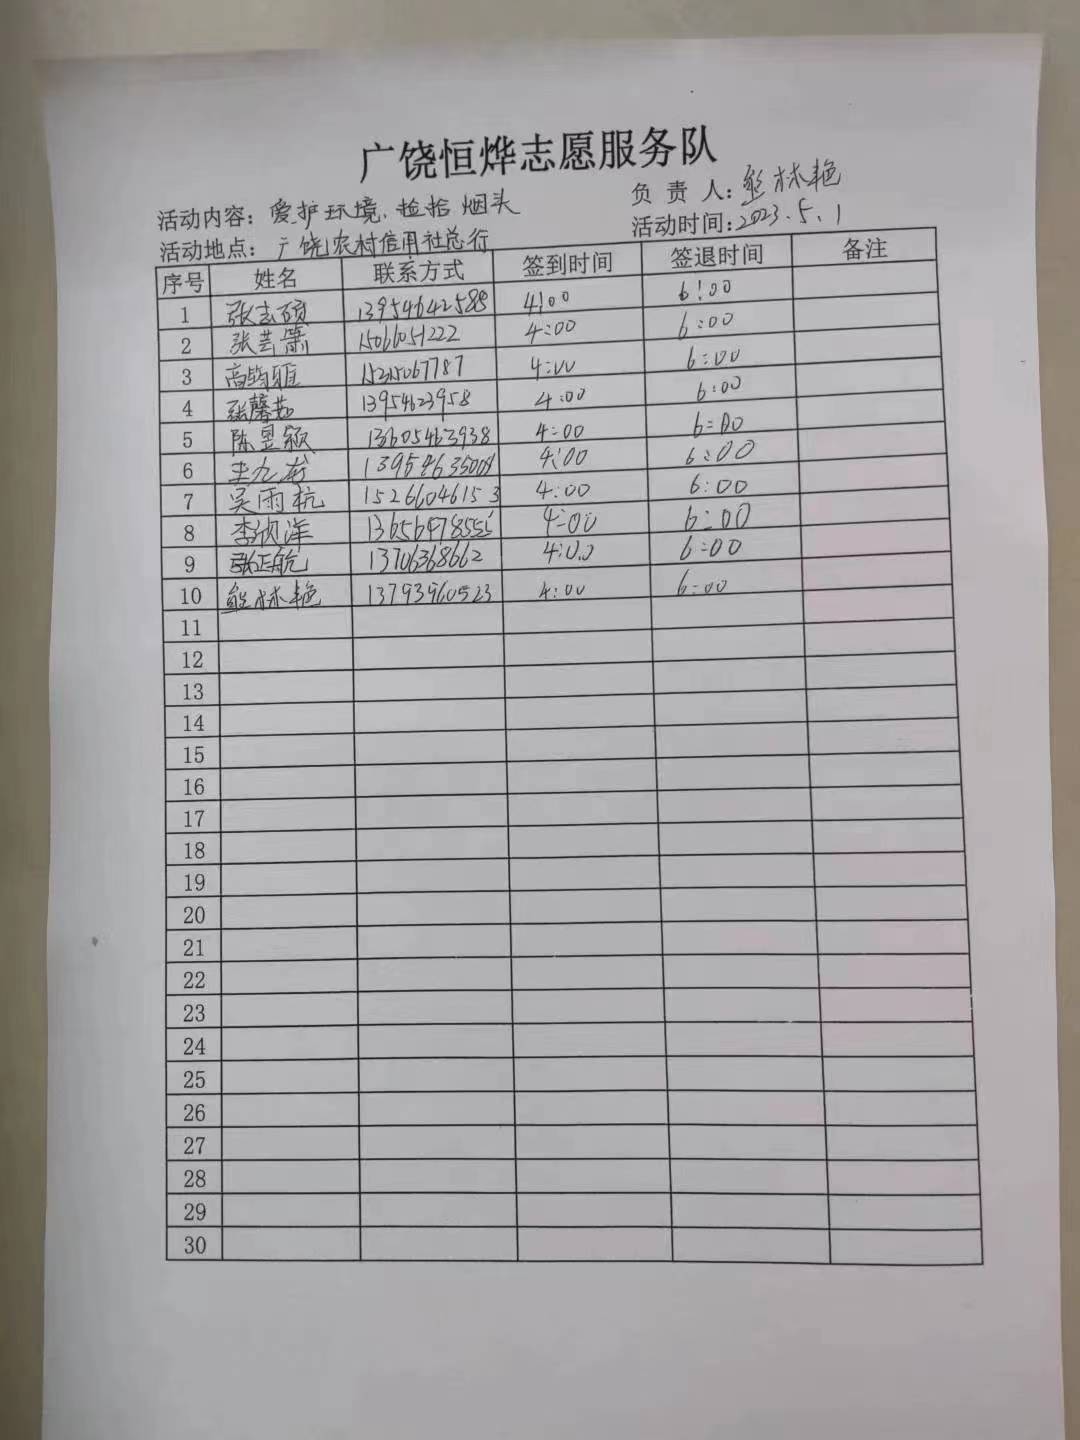 广饶恒烨志愿服务队
活动内容：爱护环境、捡拾烟头 负责人：熊林艳
活动地点：广饶农村信用社总行 活动时间：2023.5.1
序号 姓名 联系方式 签到时间 签退时间 备注
1 张志硕 13954642588 4:00 6:00
2 张芸箫 15066051222 4:00 6:00
3 高钧雅 15215067787 4:00 6:00
4 张馨 13954623958 4:00 6:00
5 陈昱颖 13605463938 4:00 6:00
6 九龙 13954635009 4:00 6:00
7 吴雨杭 15266046153 4:00 6:00
8 李欣洋 4:00 6:00
9 张正航 13706368662 4:00 6:00
10 熊林艳 13793960523 4:00 6:00
11
12
13
14
15
16
17
18
19
20
21
22
23
24
25
26
27
28
29
30